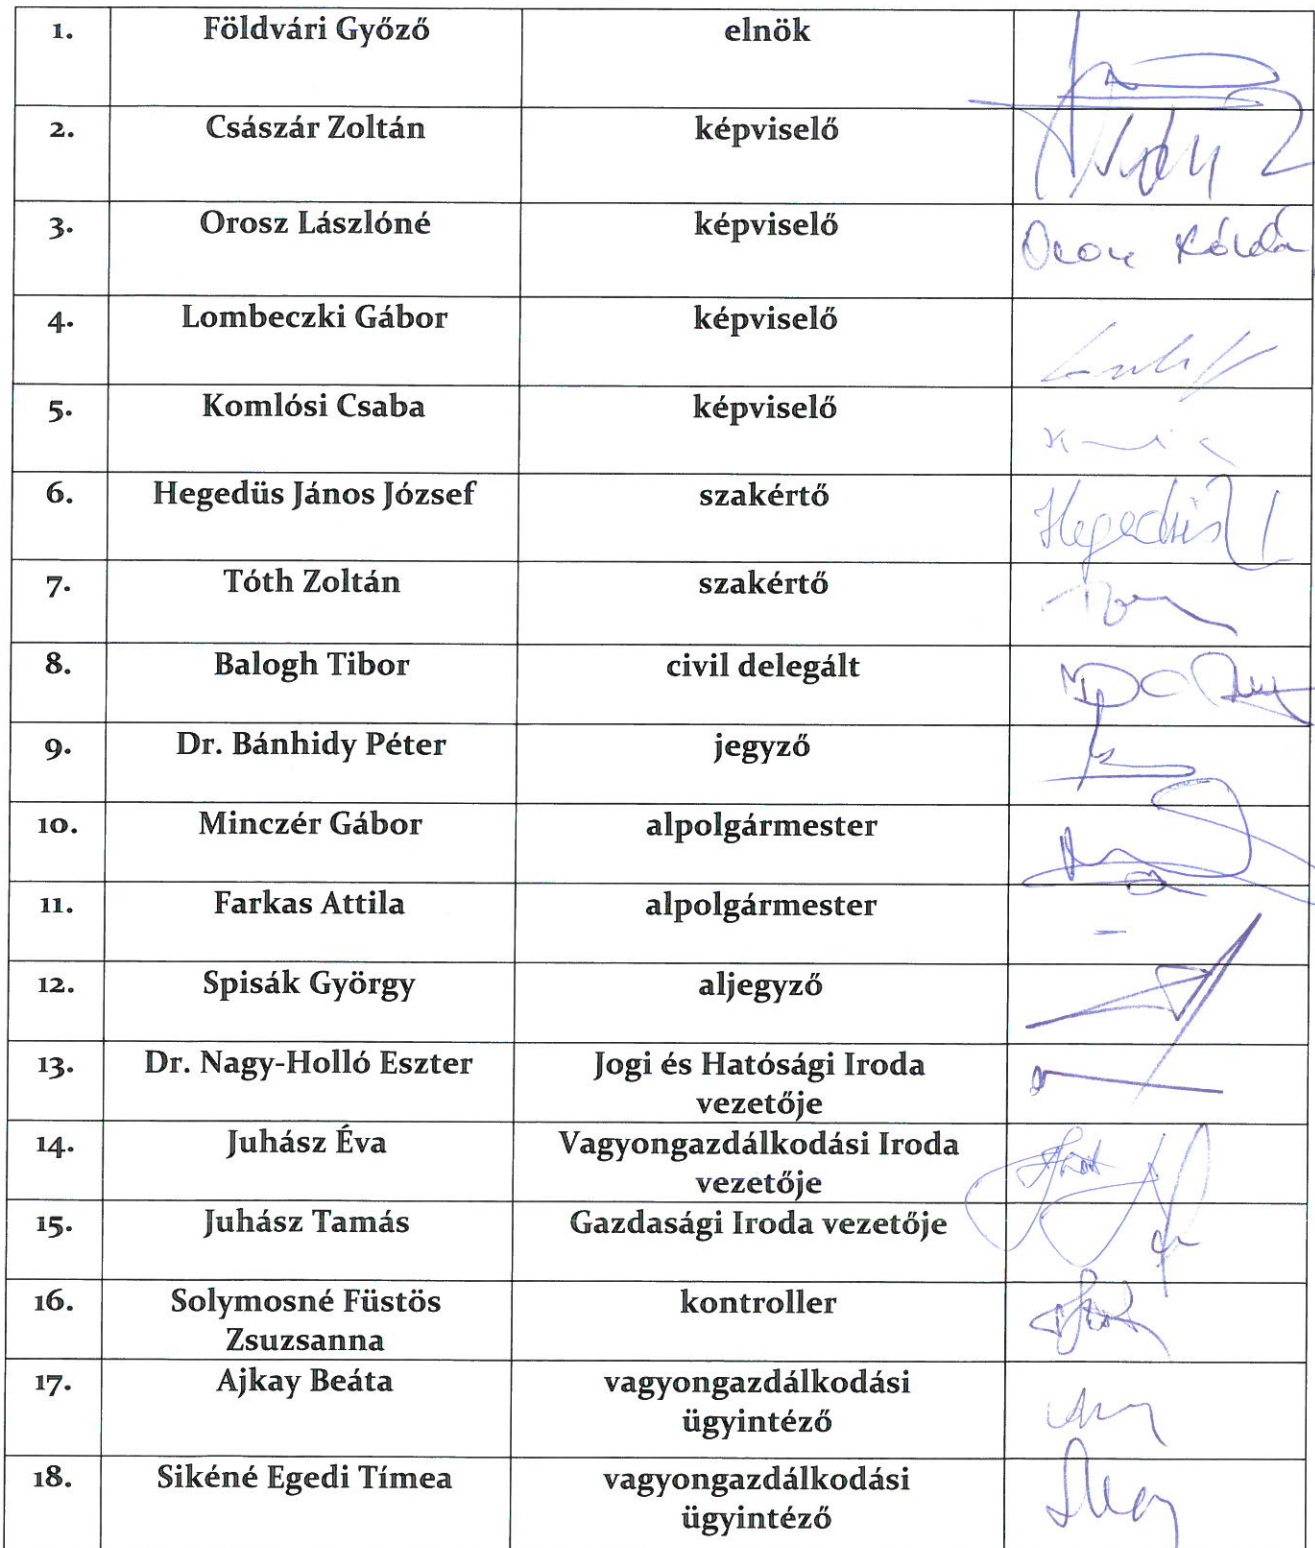 1. Földvári Győző elnök
2. Császár Zoltán képviselő
3. Orosz Lászlóné képviselő
4. Lombeczki Gábor képviselő
5. Komlósi Csaba képviselő
6. Hegedüs János József szakértő Hegedüs
7. Tóth Zoltán szakértő
8. Balogh Tibor civil delegált
9. Dr. Bánhidy Péter jegyző
10. Minczér Gábor alpolgármester
11. Farkas Attila alpolgármester –
12. Spisák György aljegyző
13. Dr. Nagy-Holló Eszter Jogi és Hatósági Iroda
vezetője
14. Juhász Éva Vagyongazdálkodási Iroda
vezetője
15. Juhász Tamás Gazdasági Iroda vezetője
16. Solymosné Füstös kontroller
Zsuzsanna
17. Ajkay Beáta vagyongazdálkodási
ügyintéző
18. Sikéné Egedi Tímea vagyongazdálkodási
ügyintéző